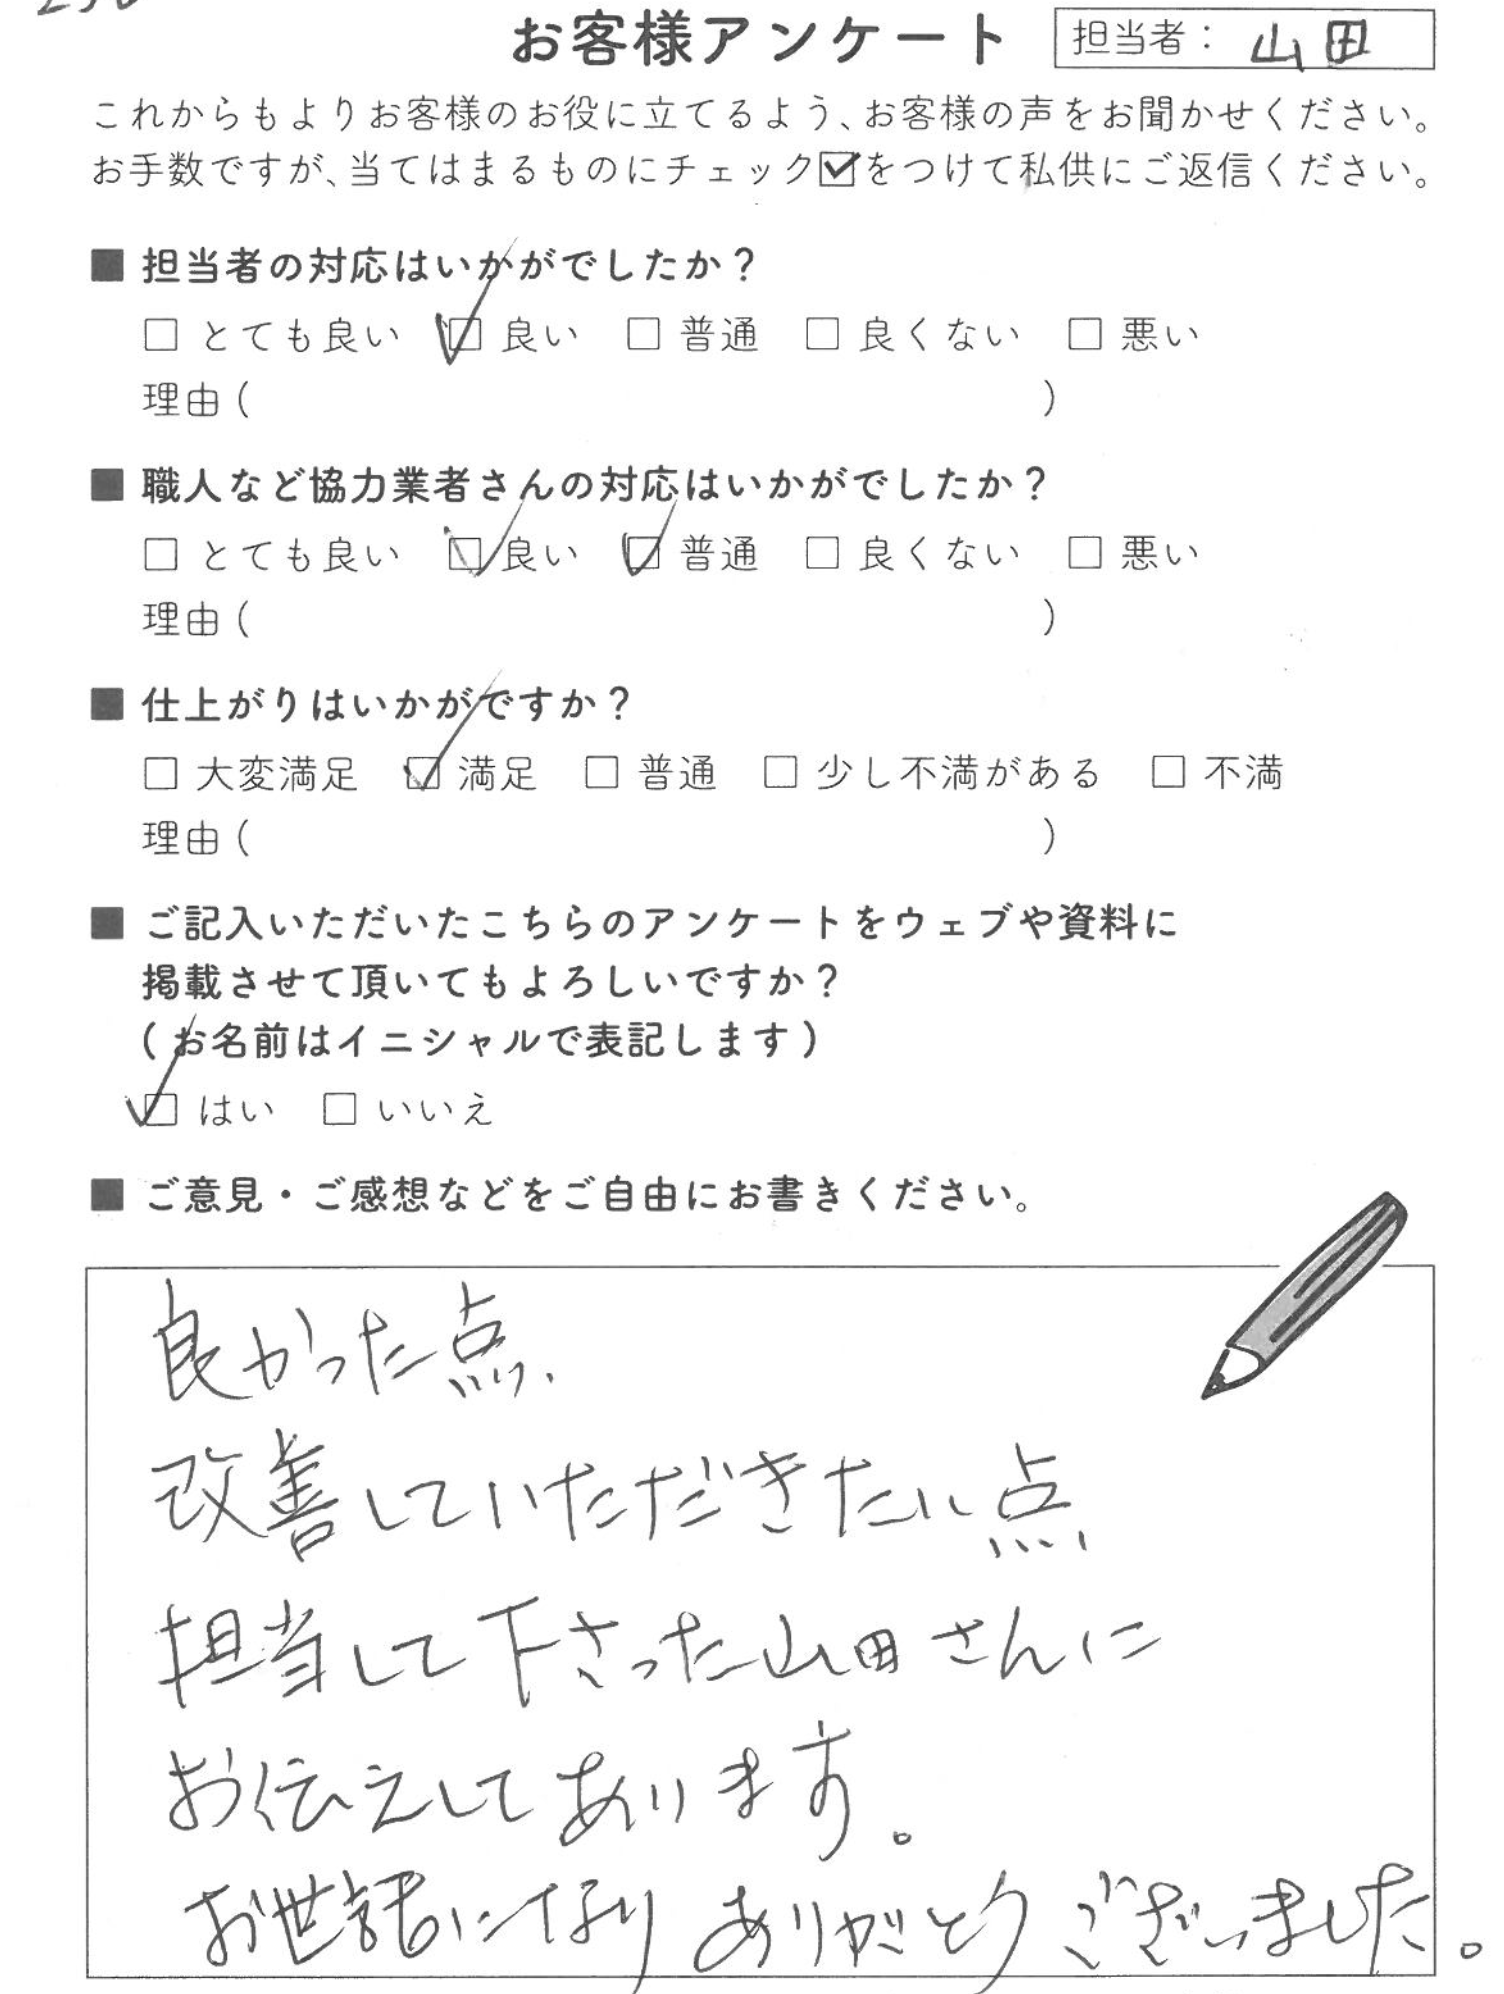 お客様アンケート 担当者: 山田
これからもよりお客様のお役に立てるよう、お客様の声をお聞かせください。
お手数ですが、当てはまるものにチェック☑をつけて私供にご返信ください。
■ 担当者の対応はいかがでしたか？
□ とても良い ☑ 良い □ 普通 □ 良くない □ 悪い
理由 ( )
■ 職人など協力業者さんの対応はいかがでしたか？
□ とても良い ☑ 良い ☑ 普通 □ 良くない □ 悪い
理由 ( )
■ 仕上がりはいかがですか？
□ 大変満足 ☑ 満足 □ 普通 □ 少し不満がある □ 不満
理由 ( )
■ ご記入いただいたこちらのアンケートをウェブや資料に
掲載させて頂いてもよろしいですか？
(お名前はイニシャルで表記します)
☑ はい □ いいえ
■ ご意見・ご感想などをご自由にお書きください。
良かった点、
改善していただきたい点
担当して下さった山田さんに
お伝えしてあります。
お世話になり ありがとうございました。